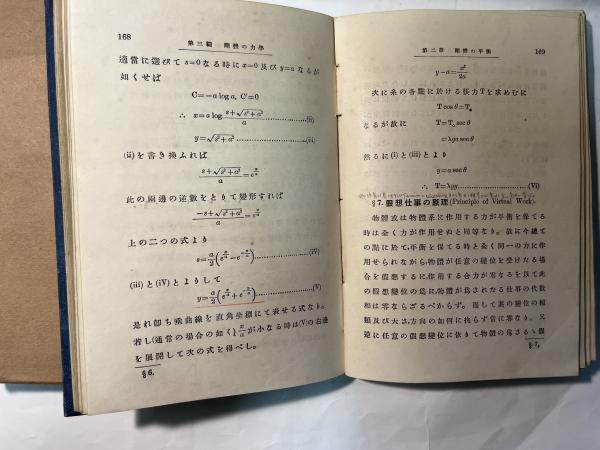 168
第三編 剛體の力學
適當に選びて s=0 なる時に x=0 及び y=a なるが
如くせば
C=−a log a, C'=0
∴ x=a log (s+√(s²+a²))/a ……(ii)
y=√(s²+a²) ……(iii)
(ii) を書き換ふれば
(s+√(s²+a²))/a = e^(x/a)
此の兩邊の逆數をとりて變形すれば
(−s+√(s²+a²))/a = e^(−x/a)
上の二つの式より
s=a/2(e^(x/a)−e^(−x/a)) ……(iV)
(iii) と (iV) とよりして
y=a/2(e^(x/a)+e^(−x/a)) ……(V)
是れ卽ち飛曲線を直角坐標にて表せる式なり。
若し(通常の場合の如く) x/a が小なる時は (V) の右邊
を展開して次の式を得べし。
§6.
第二章 剛體の平衡
169
y−a=x²/2a
次に糸の各點に於ける張力 T を求むるに
T cos θ=T₀
なるが故に
T=T₀ sec θ
=λρa sec θ
然るに (i) と (iii) とより
y=a sec θ
∴ T=λρy ……(Vi)
§7. 假想仕事の原理 (Principle of Virtual Work).
物體或は物體系に作用する力が平衡を保てる
時は全く力が作用せぬと同等なり。故に今總て
の點に於て、平衡を保てる時と全く同一の力に作
用せられながら、物體が任意の變位を受けたる場
合を假想するに、作用する合力が零なるを以て此
の假想變位の爲に、物體が爲されたる仕事の代數
和は零ならざるべからず。而して其の變位の種
類及び大さ、方向の如何に拘らず常に零なり。又
逆に任意の假想變位に依りて物體の爲さるゝ假
§7.